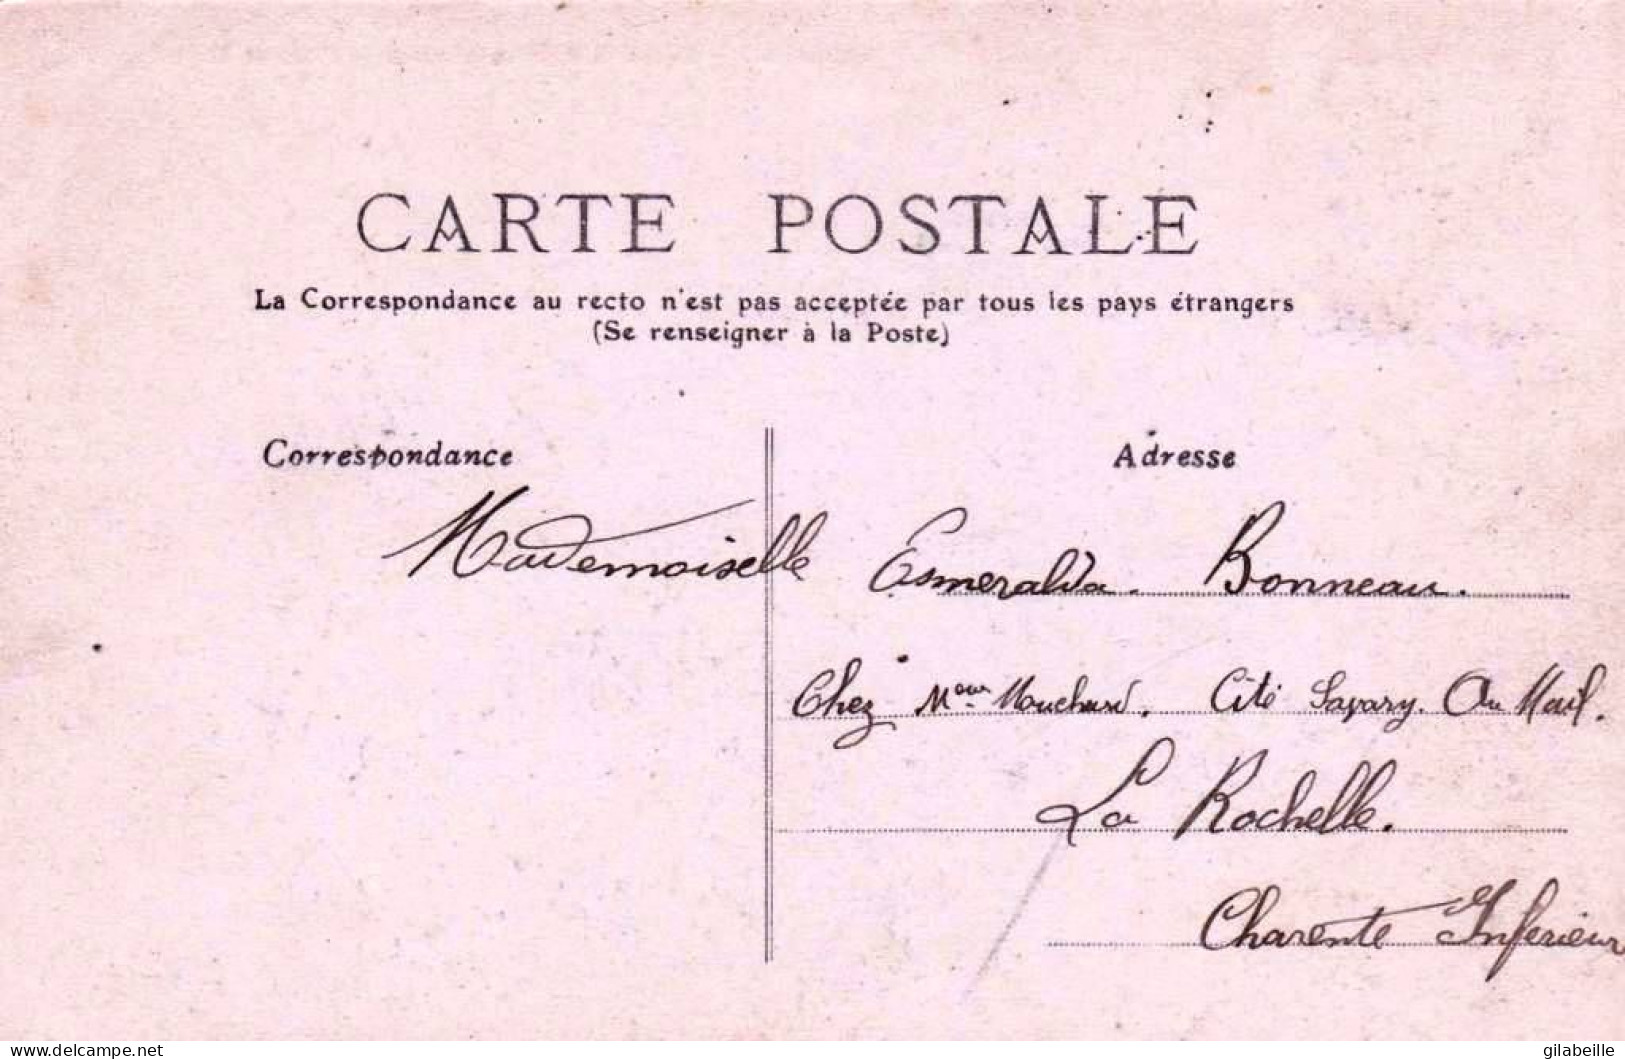 CARTE POSTALE
La Correspondance au recto n'est pas acceptée par tous les pays étrangers
(Se renseigner à la Poste)
Correspondance
Adresse
Mademoiselle Esmeralda. Bonneau.
Chez Mme Mouchard. Cité Savary. Au Mail.
La Rochelle.
Charente Inférieur
www.delcampe.net
gilabeille